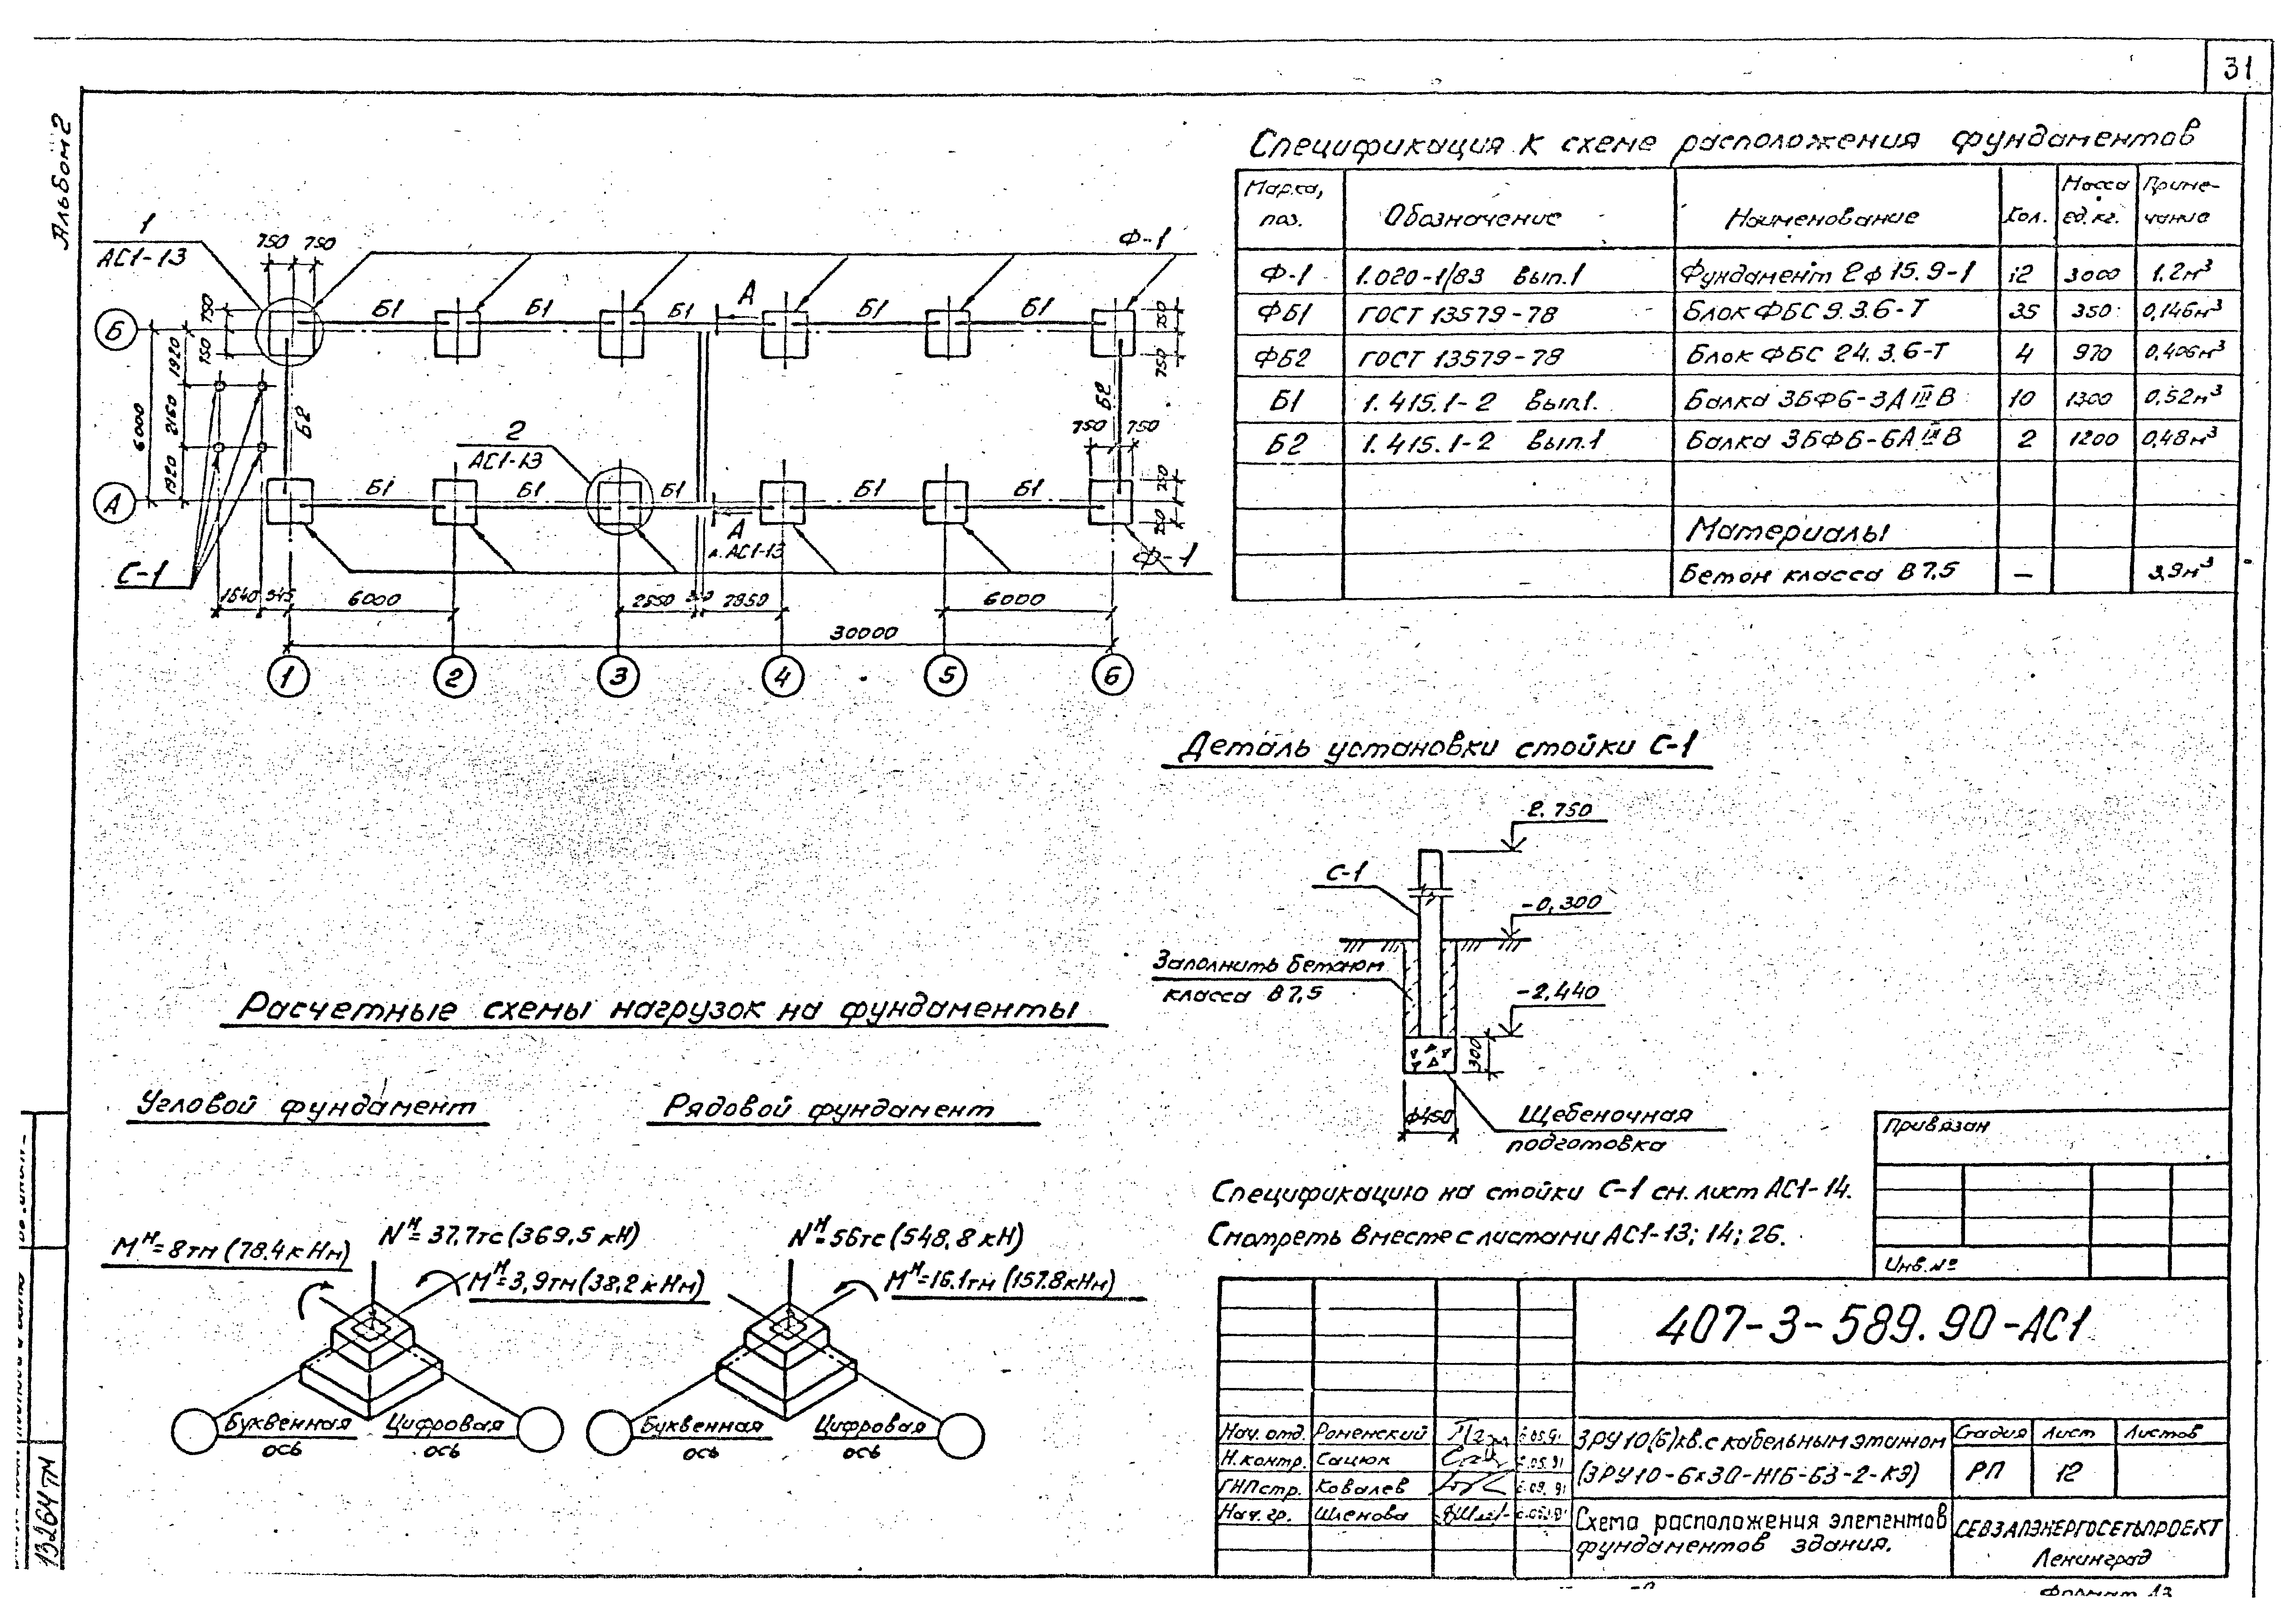 31
Альбом 2
Спецификация к схеме расположения фундаментов
Марка, поз. Обозначение Наименование Кол. Масса ед.кг. Приме-чание
Ф-1 1.020-1/83 вып.1 Фундамент 2Ф15.9-1 12 3000 1.2м³
ФБ1 ГОСТ 13579-78 Блок ФБС 9.3.6-Т 35 350 0,146м³
ФБ2 ГОСТ 13579-78 Блок ФБС 24.3.6-Т 4 970 0,406м³
Б1 1.415.1-2 вып.1. Балка 3БФ6-3АIIIВ 10 1300 0,52м³
Б2 1.415.1-2 вып.1 Балка 3БФ6-6АIIIВ 2 1200 0,48м³
Материалы
Бетон класса В7,5 — 3,9м³
1
АС1-13
750 750
Ф-1
Б1 Б1 Б1 А Б1 Б1
Б
750
750
1920
2160
1920
6000
Б2
2
АС1-13
Б2
750 750
250
750
250
250
А
Б1 Б1 Б1 А Б1 Б1
АС1-13
Ф-1
С-1
1640 545 6000 2850 2850 6000
30000
1 2 3 4 5 6
Деталь установки стойки С-1
2.750
С-1
-0,300
Заполнить бетоном
класса В7,5
-2,440
300
ф450
Щебеночная
подготовка
Расчетные схемы нагрузок на фундаменты
Угловой фундамент
Рядовой фундамент
Mᴴ=8тм(78.4кНм)
Nᴴ=37,7тс(369,5кН)
Mᴴ=3,9тм(38,2кНм)
Nᴴ=56тс(548,8кН)
Mᴴ=16.1тм(157.8кНм)
Буквенная
ось
Цифровая
ось
Буквенная
ось
Цифровая
ось
Спецификацию на стойки С-1 см. лист АС1-14.
Смотреть вместе с листами АС1-13; 14; 26.
Привязан
Инв.№
407-3-589.90-АС1
Нач. отд. Роменский
Н.контр. Сацюк
ГИПстр. Ковалев
Нач. гр. Шленова
ЗРУ10(6)кв.с кабельным этажом
(ЗРУ10-6х30-Н1Б-БЗ-2-КЭ)
Стадия Лист Листов
РП 12
Схема расположения элементов
фундаментов здания.
СЕВЗАПЭНЕРГОСЕТЬПРОЕКТ
Ленинград
Формат А3
13264тм